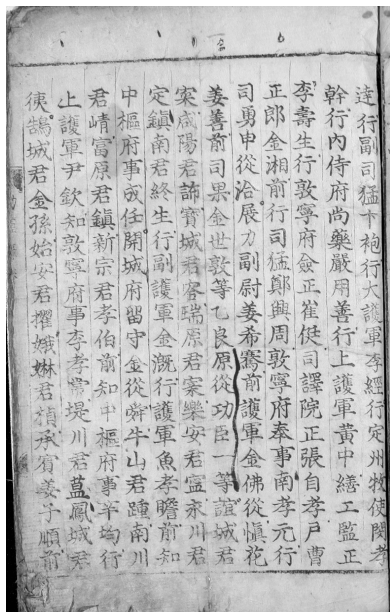 達行副司猛卞袍行大護軍李經行定州牧使閔孝
幹行內侍府尚藥嚴用善行上護軍黃中繕工監正
李壽生行敦寧府僉正崔倢司譯院正張自孝戶曹
正郎金湘前行司猛鄭興周敦寧府奉事南孝元行
司勇申從洽展力副尉姜希騫前護軍金佛從愼花
姜善前司果金世敦等乙良原從功臣一等誼城君
寀咸陽君䛔寶城君㝓瑞原君寀樂安君寍永川君
定鎮南君終生行副護軍金漑行護軍魚孝瞻前知
中樞府事成任開城府留守金從舜牛山君踵南川
君崝富原君鎮新宗君孝伯前知中樞府事羊均行
上護軍尹欽知敦寧府事李孝常堤川君蒀鳳城君
㑣鵠城君金孫始安君擢娥姏君楨承賓姜子順前